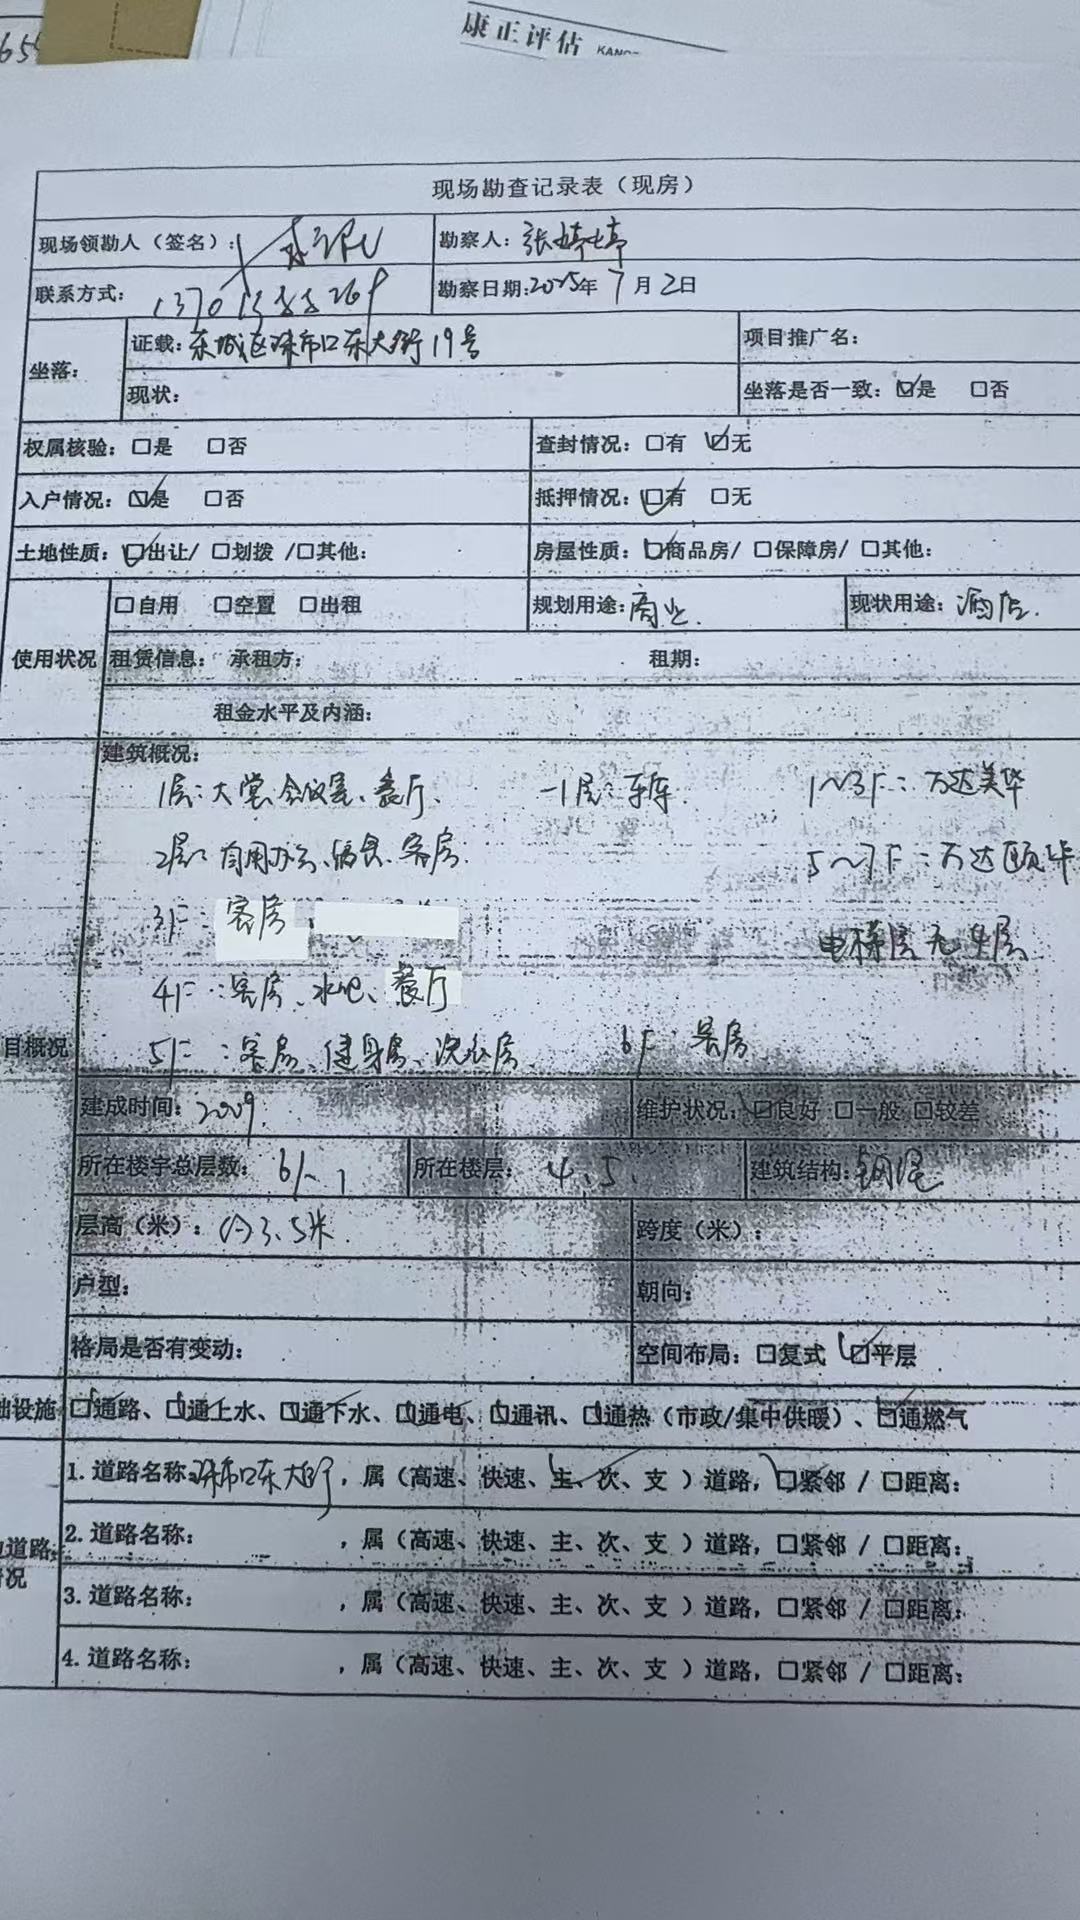 康正评估 KANG
65
现场勘查记录表（现房）
现场领勘人（签名）： 勘察人：张婷婷
联系方式： 勘察日期:2025年7月2日
坐落： 证载：东城区珠市口东大街19号 项目推广名：
现状： 坐落是否一致：☑是 □否
权属核验：□是 □否 查封情况：□有 ☑无
入户情况：☑是 □否 抵押情况：☑有 □无
土地性质：☑出让/ □划拨 /□其他： 房屋性质：☑商品房/ □保障房/ □其他：
使用状况 □自用 □空置 □出租 规划用途：商业. 现状用途：酒店.
租赁信息： 承租方： 租期：
租金水平及内涵：
目概况 建筑概况：
1层：大堂、会议室、餐厅. -1层：车库. 1～3F：万达美华
2层：自用办公、客房. 5～7F：万达颐华
3F：客房 电梯层无4层
4F：客房、水吧、餐厅
5F：客房、健身房、洗衣房 6F：客房
建成时间：2009. 维护状况：☑良好 □一般 □较差
所在楼宇总层数：6/-1 所在楼层：4、5. 建筑结构：钢混
层高（米）：约3.5米. 跨度（米）：
户型： 朝向：
格局是否有变动： 空间布局：□复式 ☑平层
础设施 ☑通路、☑通上水、☑通下水、☑通电、☑通讯、☑通热（市政/集中供暖）、☑通燃气
道路 况 1. 道路名称：珠市口东大街，属（高速、快速、主、次、支 ）道路，☑紧邻 / □距离：
2. 道路名称： ，属（高速、快速、主、次、支 ）道路，□紧邻 / □距离：
3. 道路名称： ，属（高速、快速、主、次、支 ）道路，□紧邻 / □距离：
4. 道路名称： ，属（高速、快速、主、次、支 ）道路，□紧邻 / □距离：